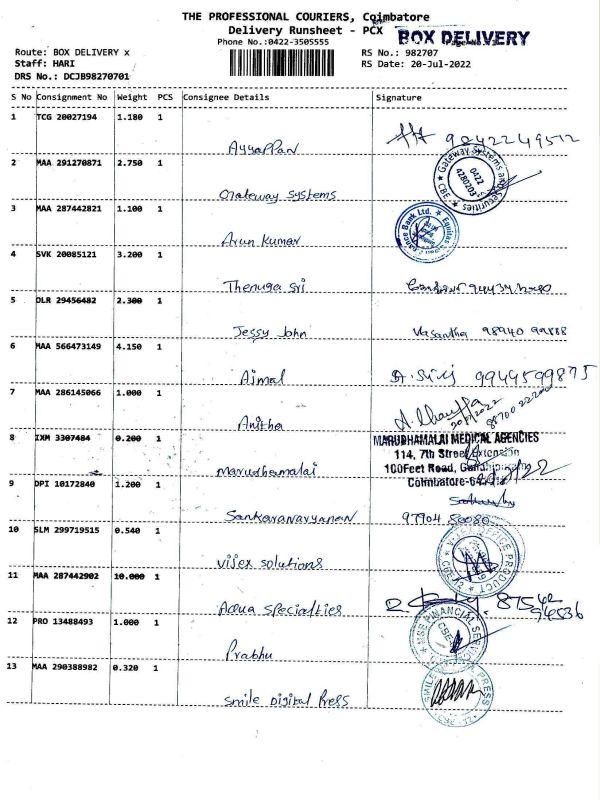 THE PROFESSIONAL COURIERS, Coimbatore
Delivery Runsheet - PCX BOX DELIVERY
Phone No.:0422-3505555
Route: BOX DELIVERY x
Staff: HARI
DRS No.: DCJB98270701
RS No.: 982707
RS Date: 20-Jul-2022
S No Consignment No Weight PCS Consignee Details Signature
1 TCG 20027194 1.180 1
Ayyappan 9042249512
2 MAA 291270871 2.750 1
Gateway Systems
Gateway Systems and Securities
CBE
0422
4280203
3 MAA 287442821 1.100 1
Arun Kumar
Bank Ltd. Equitas
4 SVK 20085121 3.200 1
Thenuga Sri
5 OLR 29456482 2.300 1
Jessy John Vasantha 98940 99888
6 MAA 566473149 4.150 1
Ajmal 9944599875
7 MAA 286145066 1.000 1
Anitha
20/7/2022
8 IXM 3307484 0.200 1
Marudhamalai
MARUDHAMALAI MEDICAL AGENCIES
114, 7th Street Extension
100Feet Road,
Coimbatore-
9 DPI 10172840 1.200 1
Sankaranarayanan 97904 50080
10 SLM 299719515 0.540 1
Vijex solutions
OFFICE PRODUCT
11 MAA 287442902 10.000 1
Aqua Specialties 87542
94536
12 PRO 13488493 1.000 1
Prabhu
NSE FINANCIAL SERVIC
CBE
13 MAA 290388982 0.320 1
Smile Digital Press
SMILE PRESS